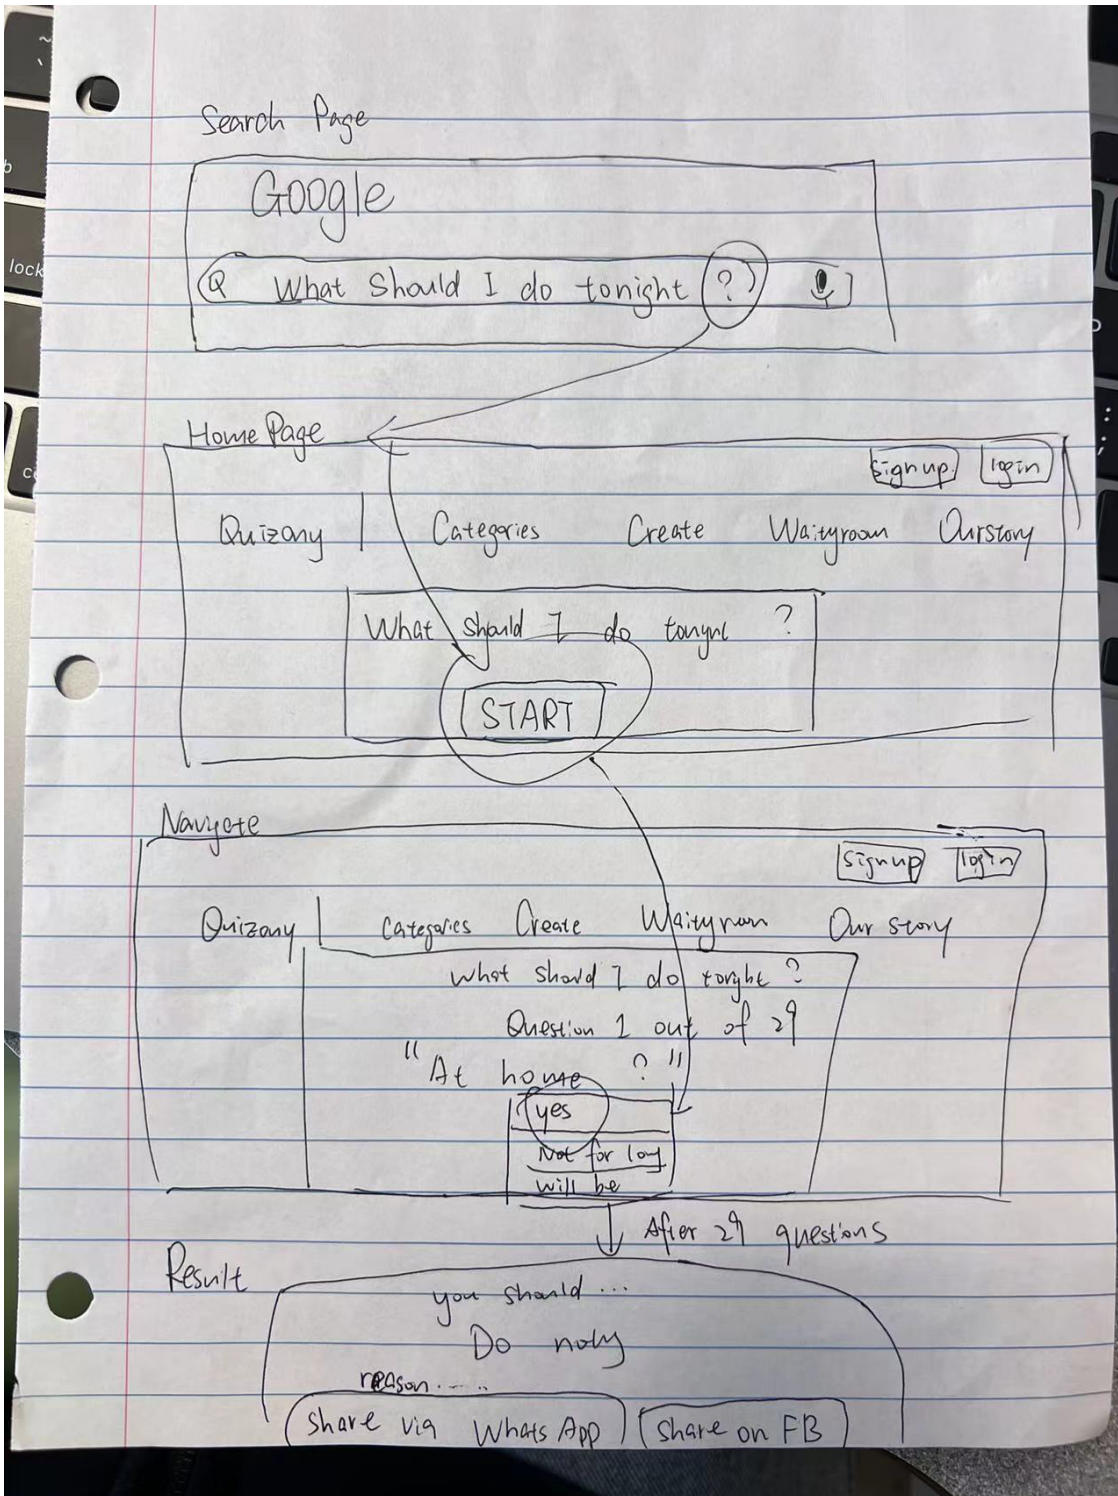 Search Page
Google
What Should I do tonight ?
Home Page
sign up login
Quizony | Categories Create Waityroom Our story
What should I do tonight ?
START
Navigate
sign up login
Quizony | Categories Create Waityroom Our story
What should I do tonight ?
Question 1 out of 29
"At home ?"
yes
Not for long
will be
After 29 questions
Result
you should ...
Do
reason.....
share via WhatsApp share on FB
~
`
b
lock